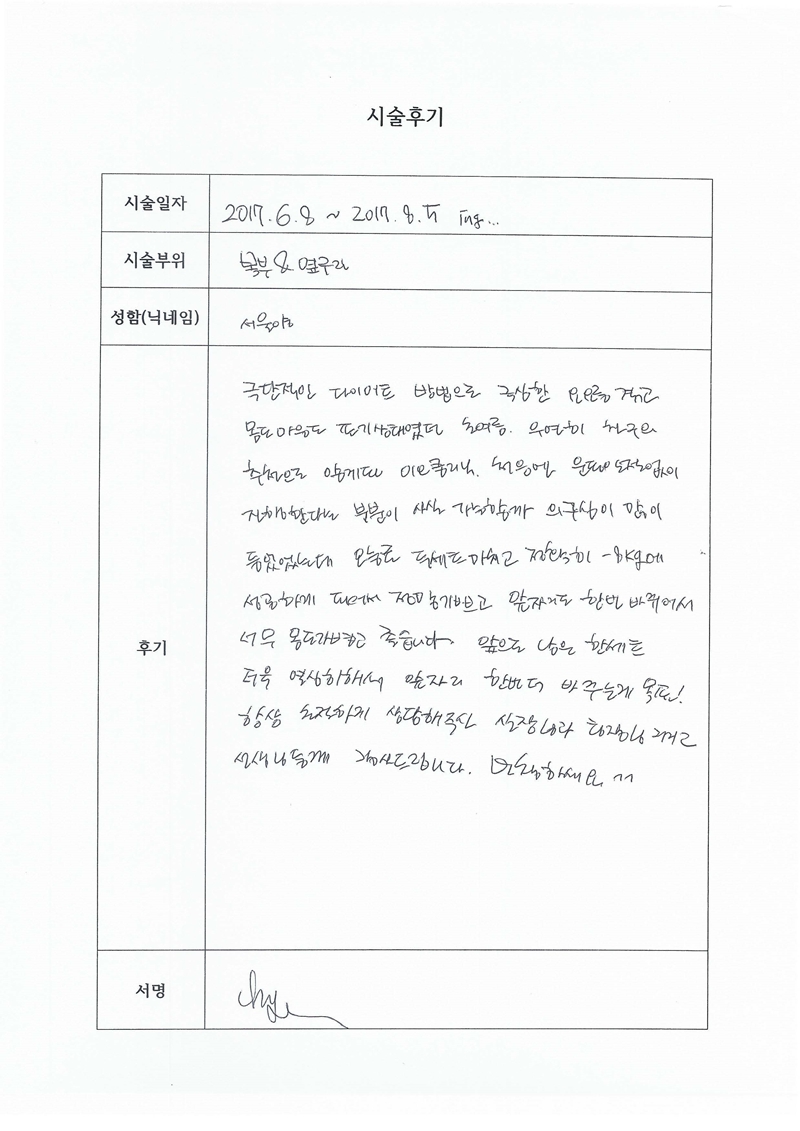 시술후기
시술일자
2017.6.8 ~ 2017.8.5 ing...
시술부위
복부 & 옆구리
성함(닉네임)
후기
극단적인 다이어트 방법으로 극심한 요요를 겪고
몸도 마음도 포기상태였던 초여름. 우연히 친구의
추천으로 알게된 처음엔 운동도 없이
진행한다는 부분이 사실 가능할까 의구심이 많이
들었었는데 오늘로 두세트 마치고 정확히 -8kg에
성공하게 되어서 정말 기쁘고 앞자리도 한번 바뀌어서
너무 몸도 가볍고 좋습니다. 앞으로 남은 한세트
더욱 열심히 해서 앞자리 한번 더 바꾸는게 목표!
항상 친절하게 상담해주신 실장님과 원장님 그리고
선생님들께 감사드립니다. 번창하세요 ^^
서명